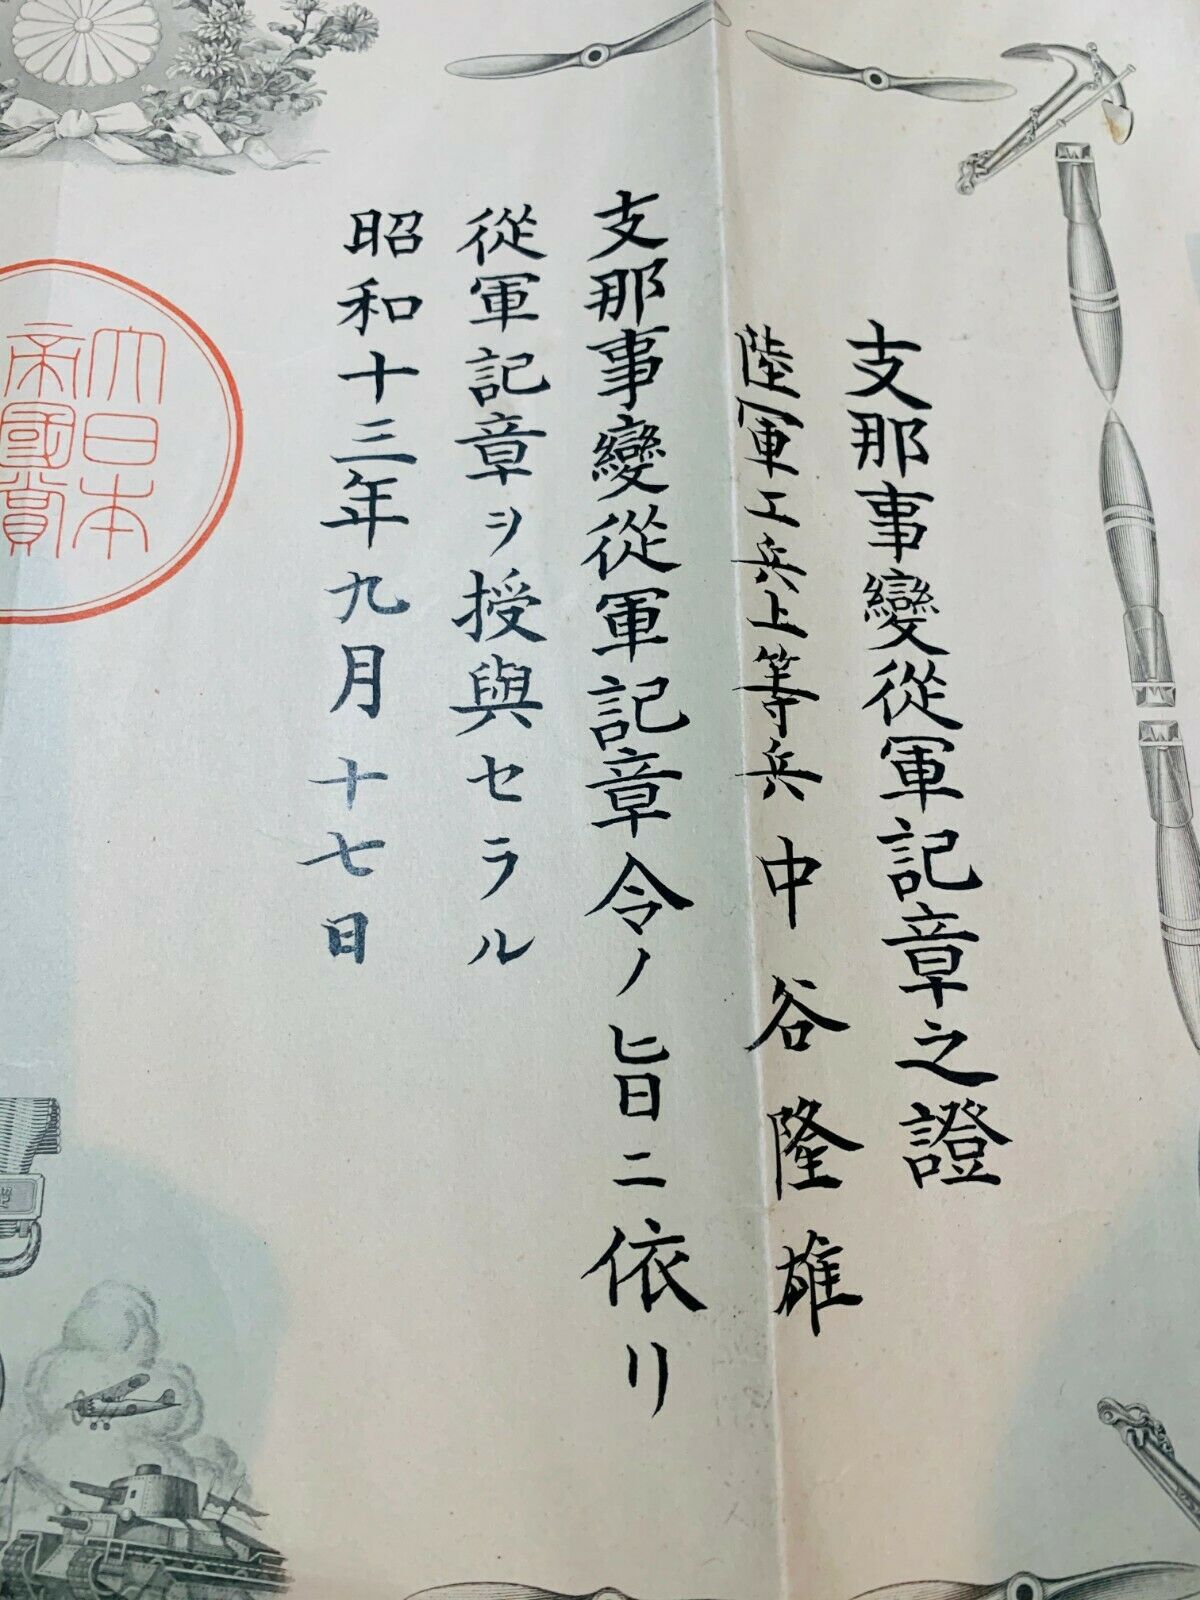 支那事變從軍記章之證
陸軍工兵上等兵中谷隆雄
支那事變從軍記章令ノ旨ニ依リ
從軍記章ヲ授與セラル
昭和十三年九月十七日
大日本
帝國賞